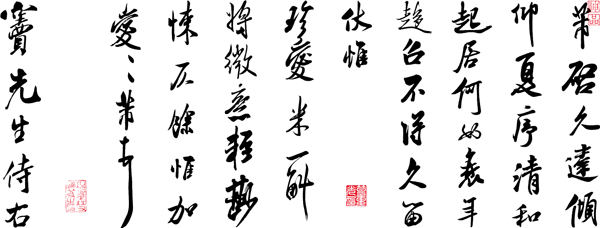 芾啓久違傾
仰夏序清和
起居何如衰年
趨召不得久留
伏惟
珍愛米一斛
將微意輕尠
悚仄餘惟加
愛〻芾頓首
竇先生侍右